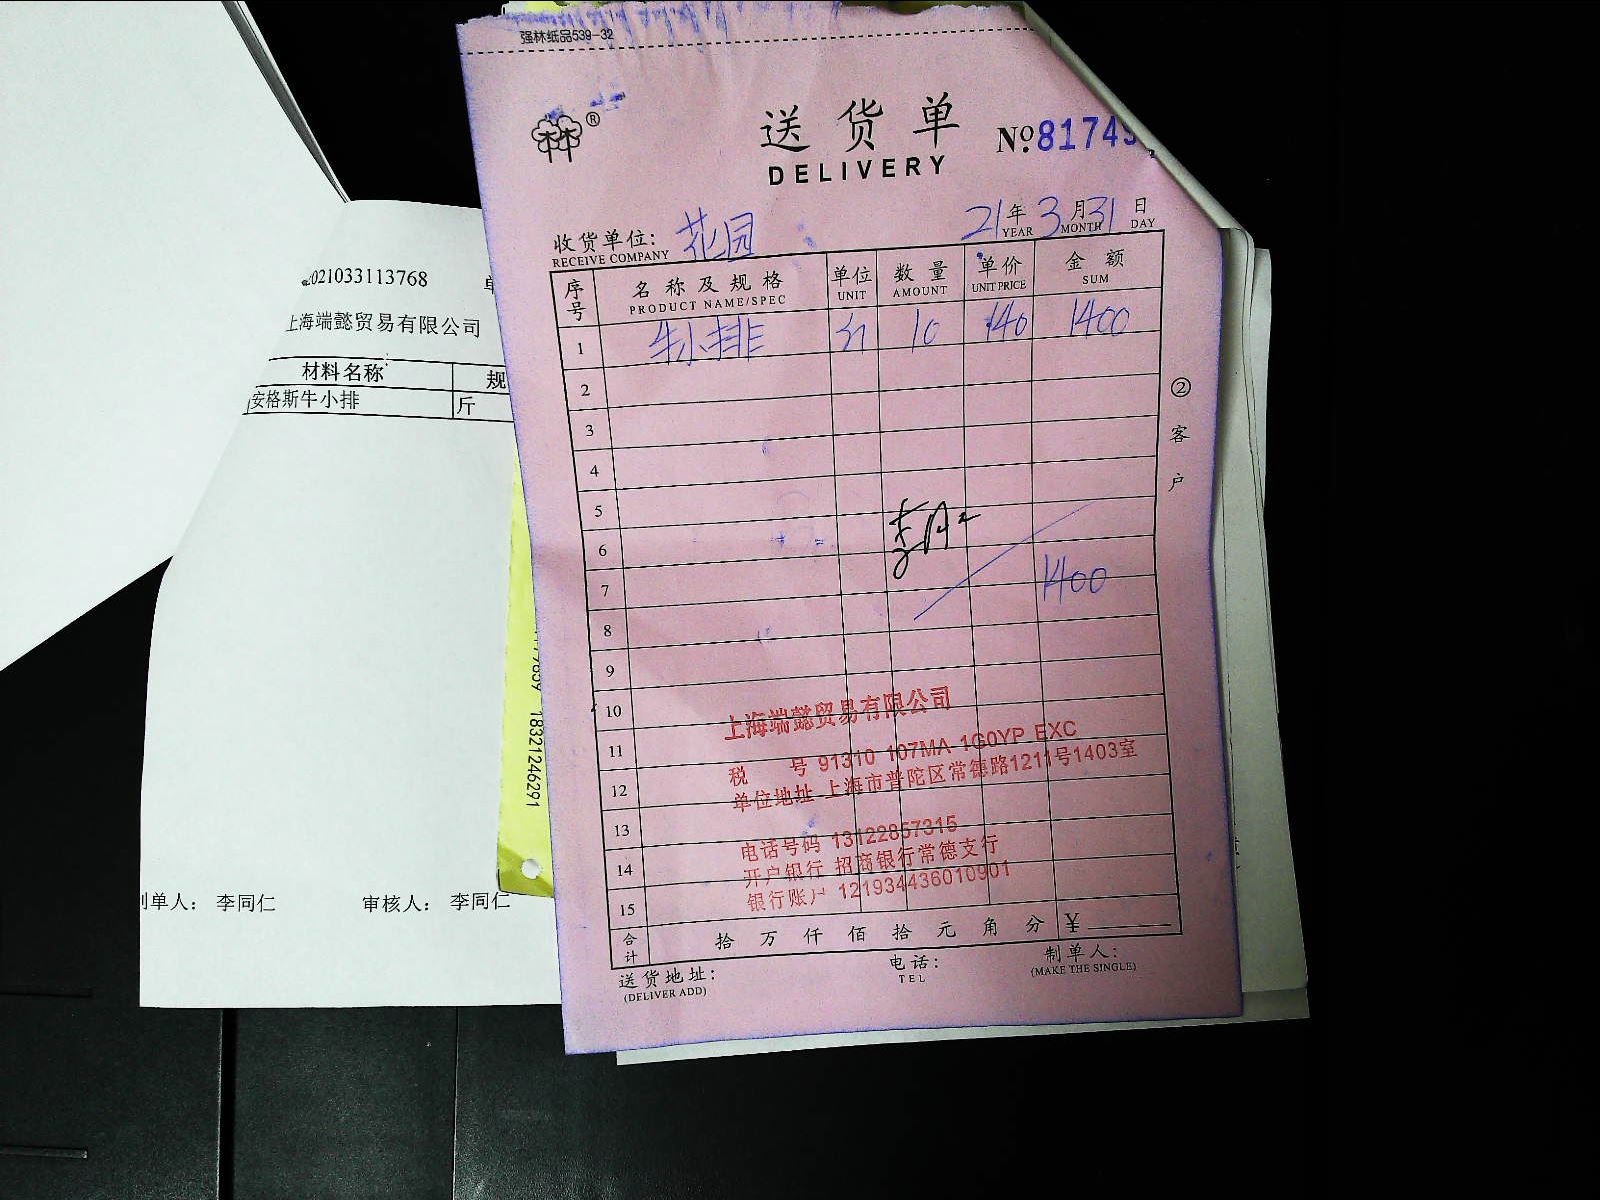 强林纸品539-32
®
送货单
DELIVERY
No.81749
21年 3月31日
YEAR MONTH DAY
收货单位: 花园
RECEIVE COMPANY
序号 名称及规格 单位 数量 单价 金额
PRODUCT NAME/SPEC UNIT AMOUNT UNIT PRICE SUM
1 牛小排 斤 10 140 1400
2
3
4
5
6
7 1400
8
9
10
11
12
13
14
15
上海端懿贸易有限公司
税 号 91310 107MA 1G0YP EXC
单位地址 上海市普陀区常德路1211号1403室
电话号码 13122857315
开户银行 招商银行常德支行
银行账户 121934436010901
合计 拾 万 仟 佰 拾 元 角 分 ¥
送货地址: 电话: 制单人:
(DELIVER ADD) TEL (MAKE THE SINGLE)
②客户
2021033113768
上海端懿贸易有限公司
材料名称 规
安格斯牛小排 斤
制单人: 李同仁 审核人: 李同仁
18321246291